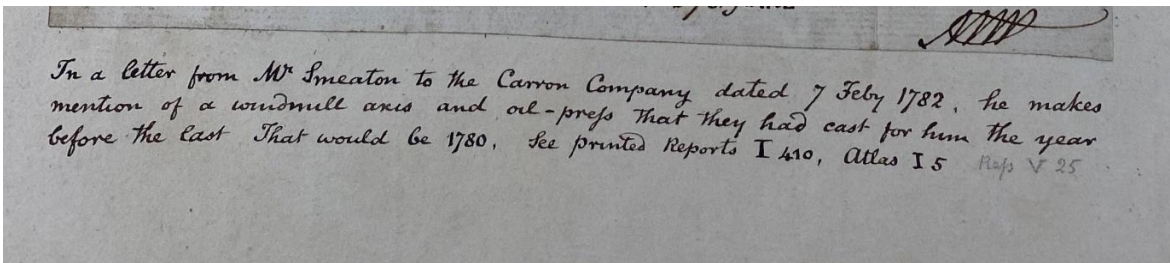 In a letter from Mr Smeaton to the Carron Company dated 7 Feby 1782, he makes
mention of a windmill axis and oil-press that they had cast for him the year
before the last That would be 1780, See printed Reports I 410, Atlas I 5 Reps V 25